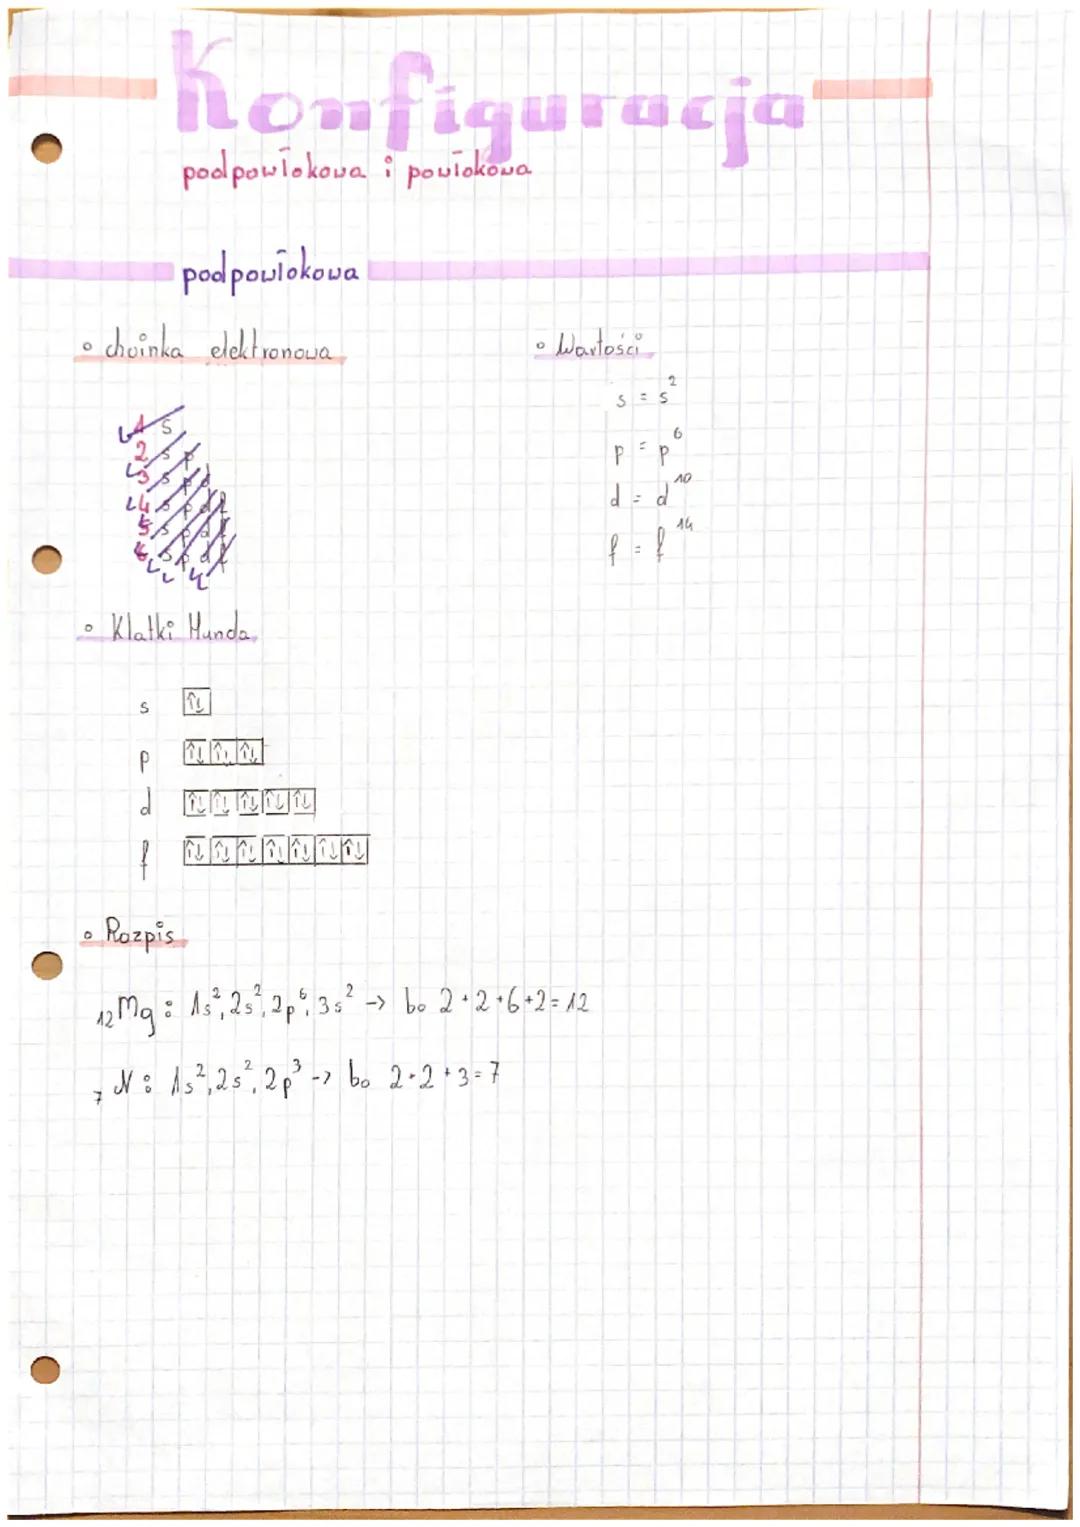 Konfiguracja
podpowłokowa i powłokowa
podpowłokowa
• choinka elektronowa
1 s
2 s p
3 s p d
4 s p d f
5 s p d f
6 s p d f
• Wartości
s = s²
p = p⁶
d = d¹⁰
f = f¹⁴
• Klatki Hunda
s ↑↓
p ↑↓ ↑↓ ↑↓
d ↑↓ ↑↓ ↑↓ ↑↓ ↑↓
f ↑↓ ↑↓ ↑↓ ↑↓ ↑↓ ↑↓ ↑↓
• Rozpis
₁₂Mg: 1s², 2s², 2p⁶, 3s² -> bo 2+2+6+2=12
₇N: 1s², 2s², 2p³ -> bo 2+2+3=7